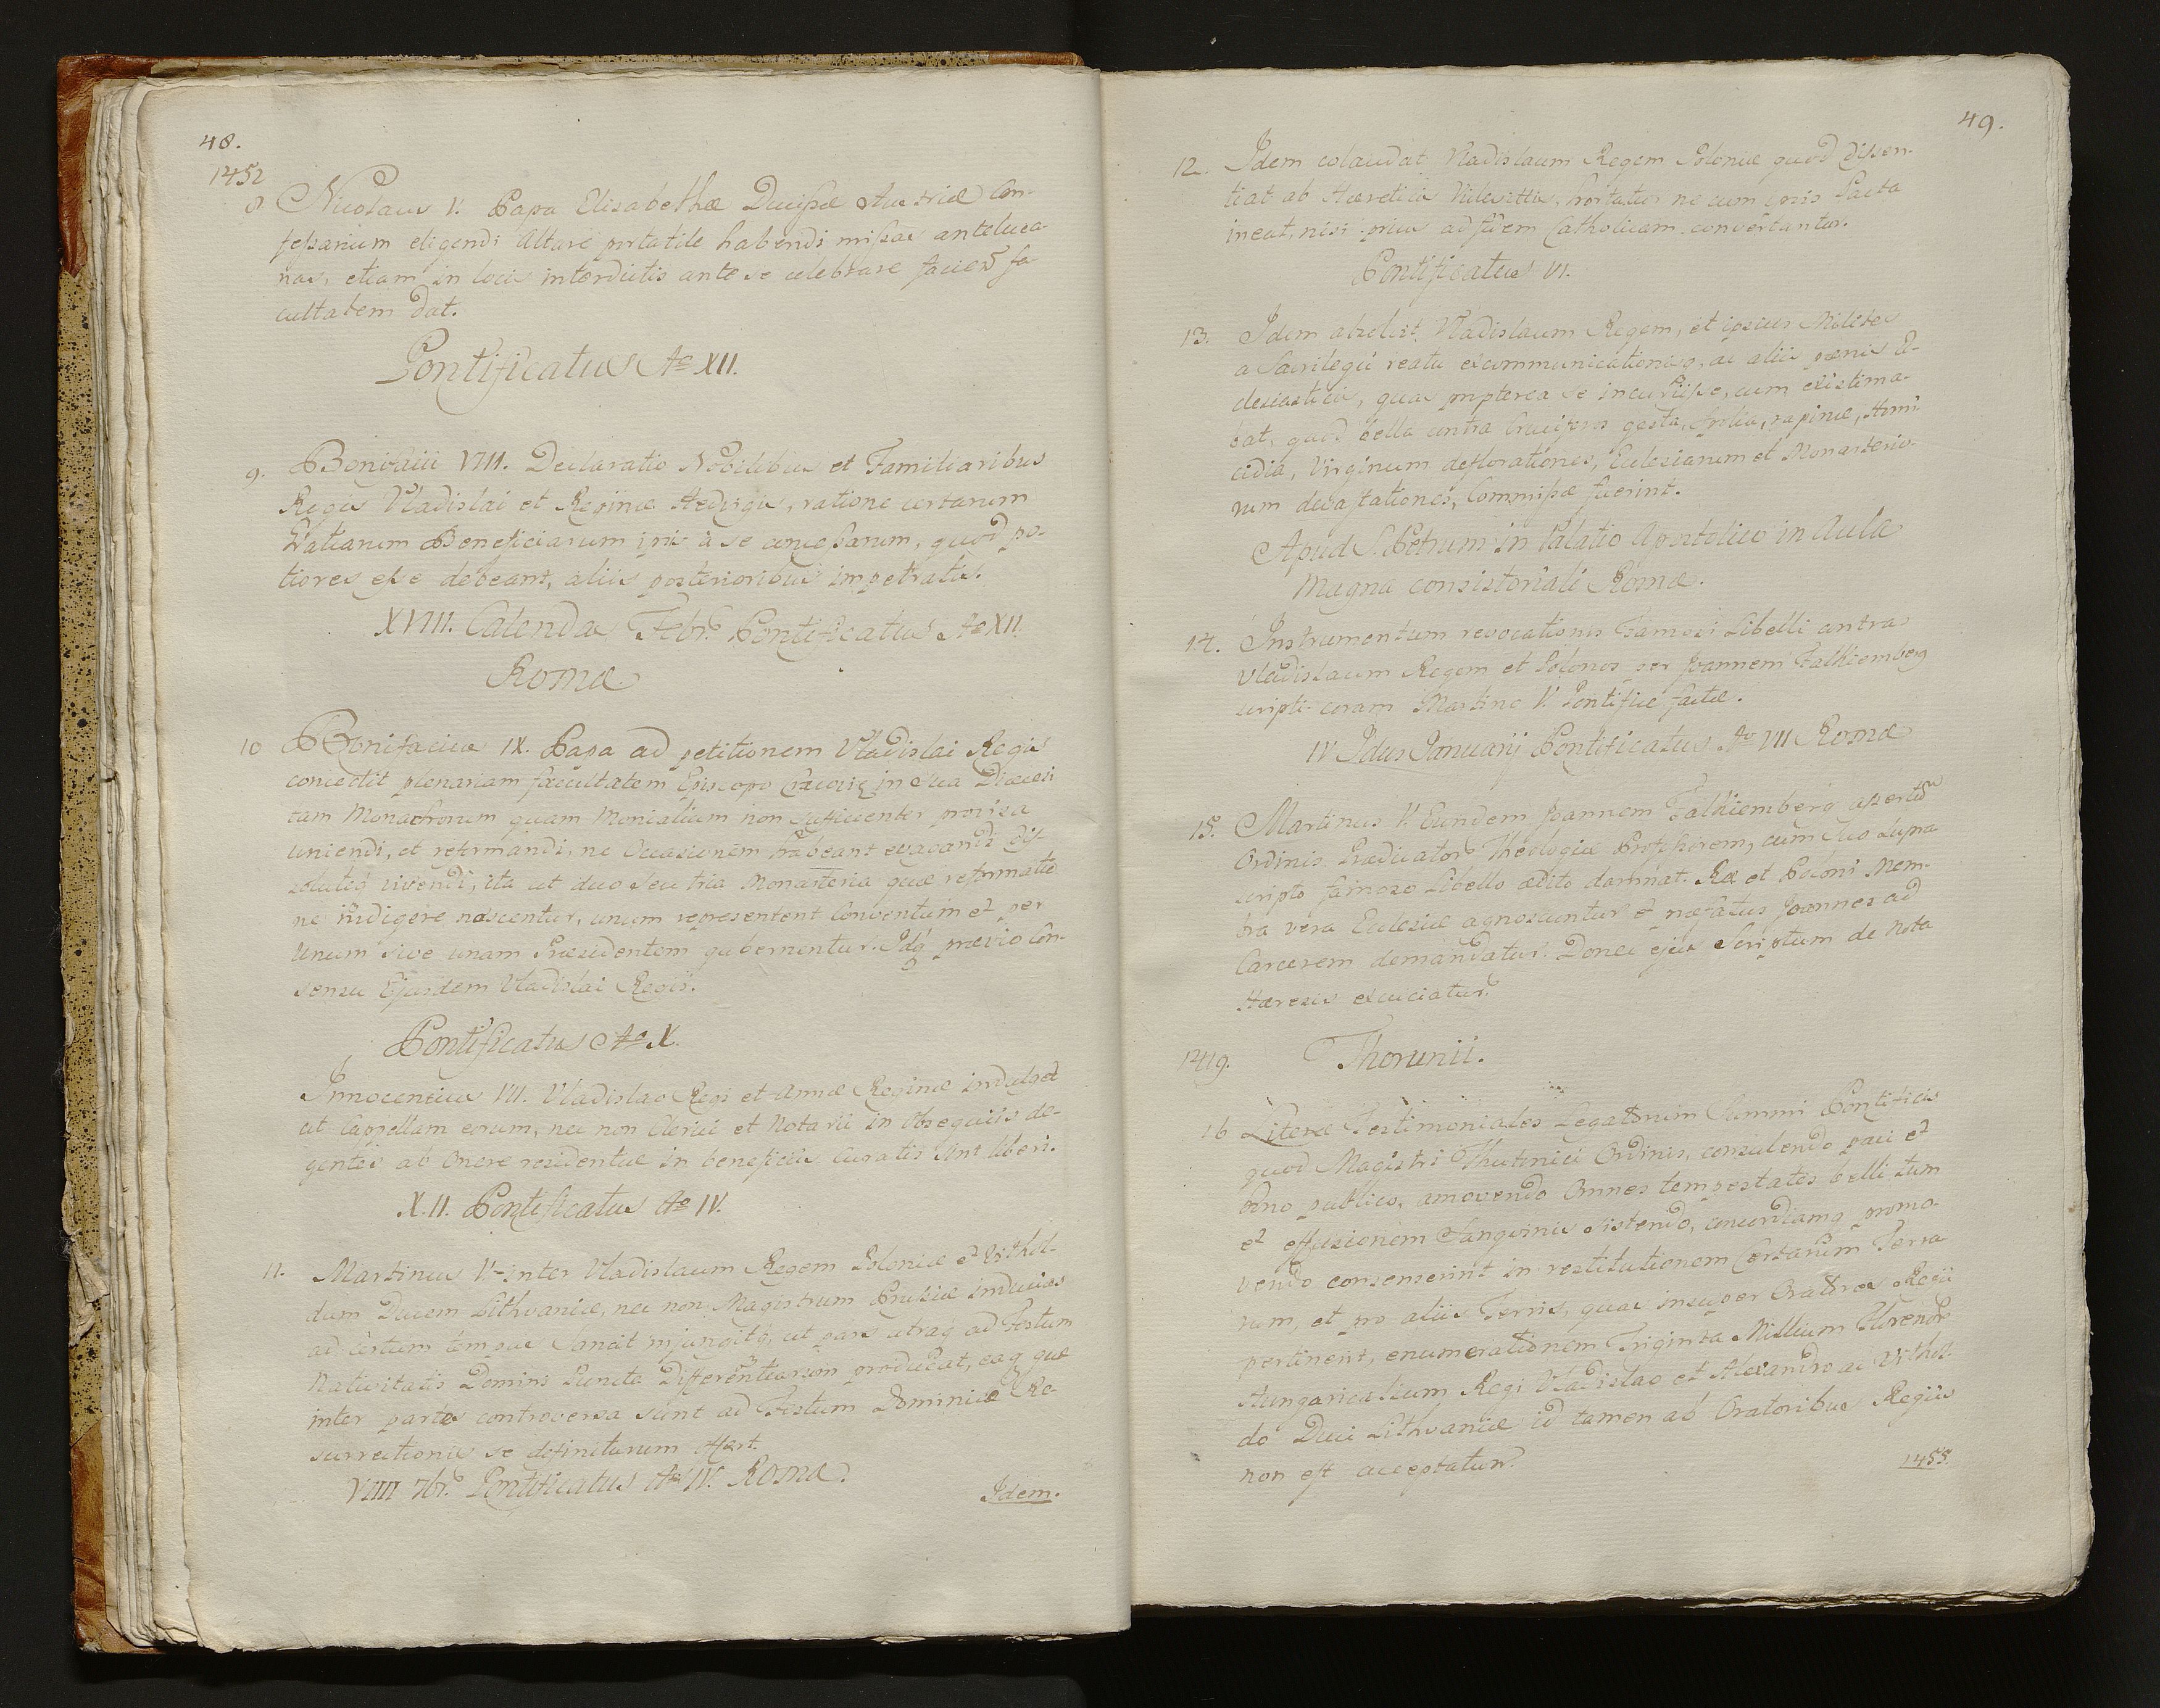 48.
1452
8. Nicolaus V. Papa Elisabethæ Ducissæ Austriæ Con-
fessarium eligendi Altare portatile habendi missas anteluca-
nas, etiam in locis interdictis ante se celebrare faciend fa-
cultatem dat.
Pontificatus Ao XII.
9. Bonifacii VIII. Declaratio Nobilibus et Familiaribus
Regis Vladislai et Reginæ Hedvigis, ratione certarum
Gratiarum Beneficiarum ipsis à se concessarum, quod po-
tiores esse debeant, aliis posterioribus impetratis.
XVIII. Calendas Febr. Pontificatus Ao XII.
Romæ
10 Bonifacius IX. Papa ad petitionem Vladislai Regis
concedit plenariam facultatem Episcopo Cracovie in sua Diæcesi
tam Monachorum quam Monialium non sufficienter provisa
uniendi, et reformandi, ne Occasionem habeant evagandi dis-
soluteq vivendi, ita ut duo seu tria Monasteria quæ reformatio
ne indigere noscentur, unum representent Conventum et per
Unum sive unam Præsidentem gubernentur. Idq prævio Con-
sensu Ejusdem Vladislai Regis.
Pontificatus Ao X.
Innocentius VII. Vladislao Regi et Annæ Reginæ indulget
ut Cappellam eorum, nec non Clerici et Notarii in Obsequiis de-
gentes ab Onere residentiæ in beneficiis Curatis sint liberi.
X. II. Pontificatus Ao IV.
11. Martinus V. inter Vladislaum Regem Poloniæ et Vithol-
dum Ducem Lithvaniæ, nec non Magistrum Prussiæ inducias
ad certum tempus Sancit injungitq, ut pars utraq ad Festum
Nativitatis Domini Puncta Differentiarum producat, eaq quæ
inter partes controversa sunt ad Festum Dominicæ Re-
surrectionis se definiturum offert.
VIIII 7br. Pontificatus Ao IV. Romæ.
Idem.
49.
12. Idem colaudat Vladislaum Regem Poloniæ quod dissen-
tiat ab Hæreticis Viklefistis, hortatur ne cum ipsis Pacta
ineat, nisi prius ad fidem Catholicam convertantur.
Pontificatus VI.
13. Idem absolvit Vladislaum Regem, et ipsius Milites
a Sacrilegii reatu excommunicationisq, ac aliis pœnis Ec-
clesiasticis, quas propterea se incurrisse, cum existima-
bat, quod bella contra Cruciferos gesta, spolia, rapinæ, Homi
cidia, Virginum deflorationes, Ecclesiarum et Monasterio-
rum devastationes, Commissæ fuerint.
Apud S. Petrum in Palatio Apostolico in Aula
Magna consistoriali Romæ.
14. Instrumentum revocationis Famosi Libelli contra
Vladislaum Regem et Polonos per Joannem Falkiemberg
scripti coram Martino V. Pontifice factæ.
IV Idus Januarij Pontificatus Ao VII Romæ
15. Martinus V. Eundem Joannem Falkiemberg assertu
Ordinis Prædicator Theologiæ Professorem, cum suo supra
scripto famoso Libello ædito damnat. Rex et Poloni Mem-
bra vera Ecclesiæ agnoscuntur et præfatus Joannes ad
Carcerem demandatur. Donec ejus Scriptum de Nota
Hæresis ejiciatur.
1419. Thorunii.
16 Literæ Testimoniales Legatorum Summi Pontificis
quod Magistri Thutonici Ordinis, consulendo paci et
bono publico, amovendo Omnes tempestates belli tum
et effusionem Sangvinis sistendo, concordiamq promo-
vendo consenserint in restitutionem Certarum Terra
rum, et pro aliis Terris, quas insuper Oratores Regii
pertinent, enumerationem Triginta Millium Florenor
Hungaricalium Regi Vladislao et Alexandro ac Vithol-
do Duci Lithvaniæ id tamen ab Oratoribus Regiis
non est acceptatum.
1455.